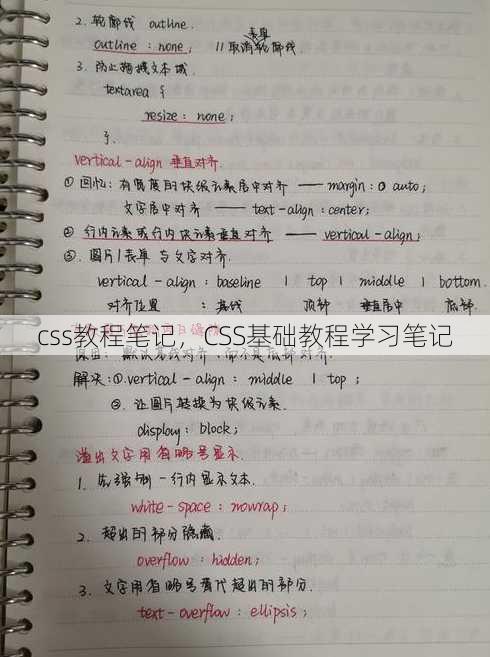 2. 轮廓线 outline.
outline : none; //取消表单轮廓线
3. 防止拖拽文本域.
textarea {
resize : none;
}.
vertical-align 垂直对齐.
① 回忆: 有宽度的块级元素居中对齐 —— margin: 0 auto;
文字居中对齐 —— text-align :center;
② 行内元素或行内块元素垂直对齐 —— vertical-align;
③. 图片/表单 与文字对齐.
vertical-align : baseline | top | middle | bottom.
对齐位置 : 基线 顶部 垂直居中 底部.
css教程笔记，CSS基础教程学习笔记
原因: 默认基线对齐,而不是底部对齐.
解决:①.vertical-align : middle | top ;
②. 让图片转换为块级元素.
display: block;
溢出文字用省略号显示.
1. 先强制一行内显示文本.
white-space : nowrap;
2. 超出的部分隐藏.
overflow : hidden;
3. 文字用省略号替代超出的部分.
text-overflow : ellipsis;